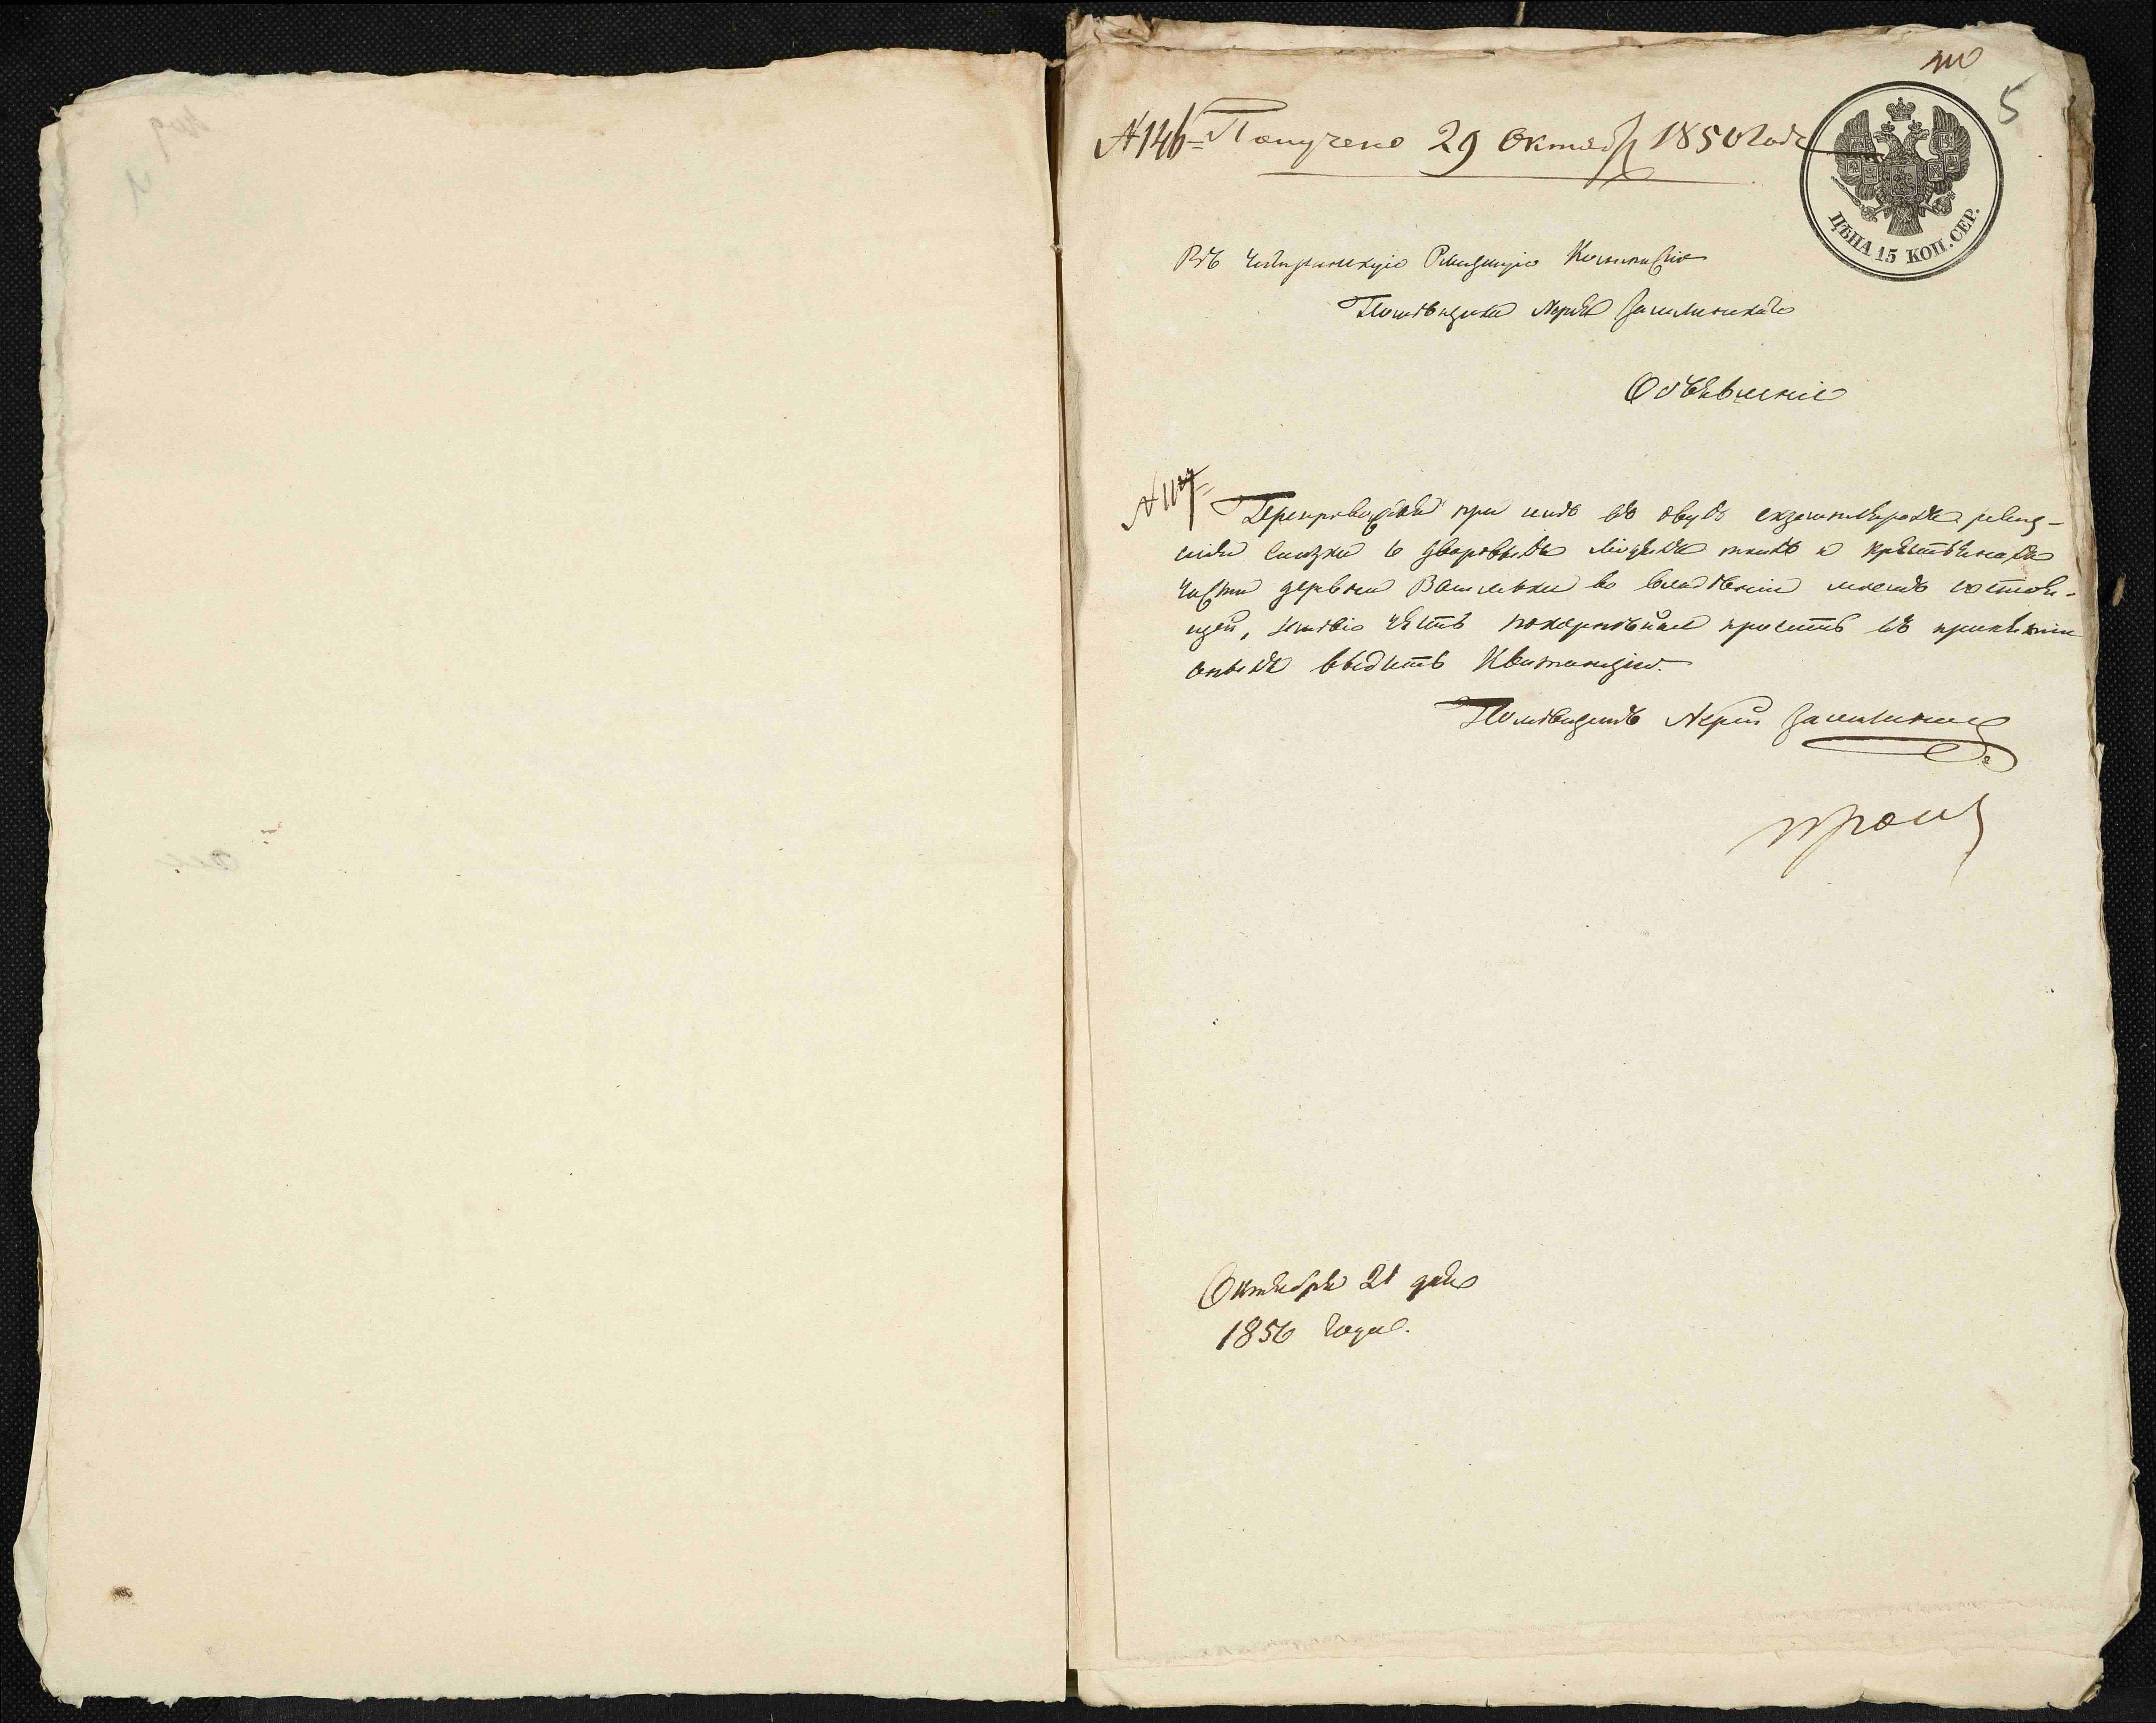 5
№ 146 Получено 29 Октябр 1850 года
ЦѢНА 15 КОП. СЕР.
Въ Ревизкую Коммисію
Помѣщика
Объявленіе
Препровождая при семъ въ двухъ екземплярахъ ревиз-
скія сказки о дворовыхъ людяхъ такъ и крѣстьянахъ
части деревни во владѣніи моемъ состоя-
щей, имѣю чѣсть покорнѣйше просить въ принятіи
оныхъ выдать Квитанцію.
Помѣщикъ
Октября 21 дня
1850 года.